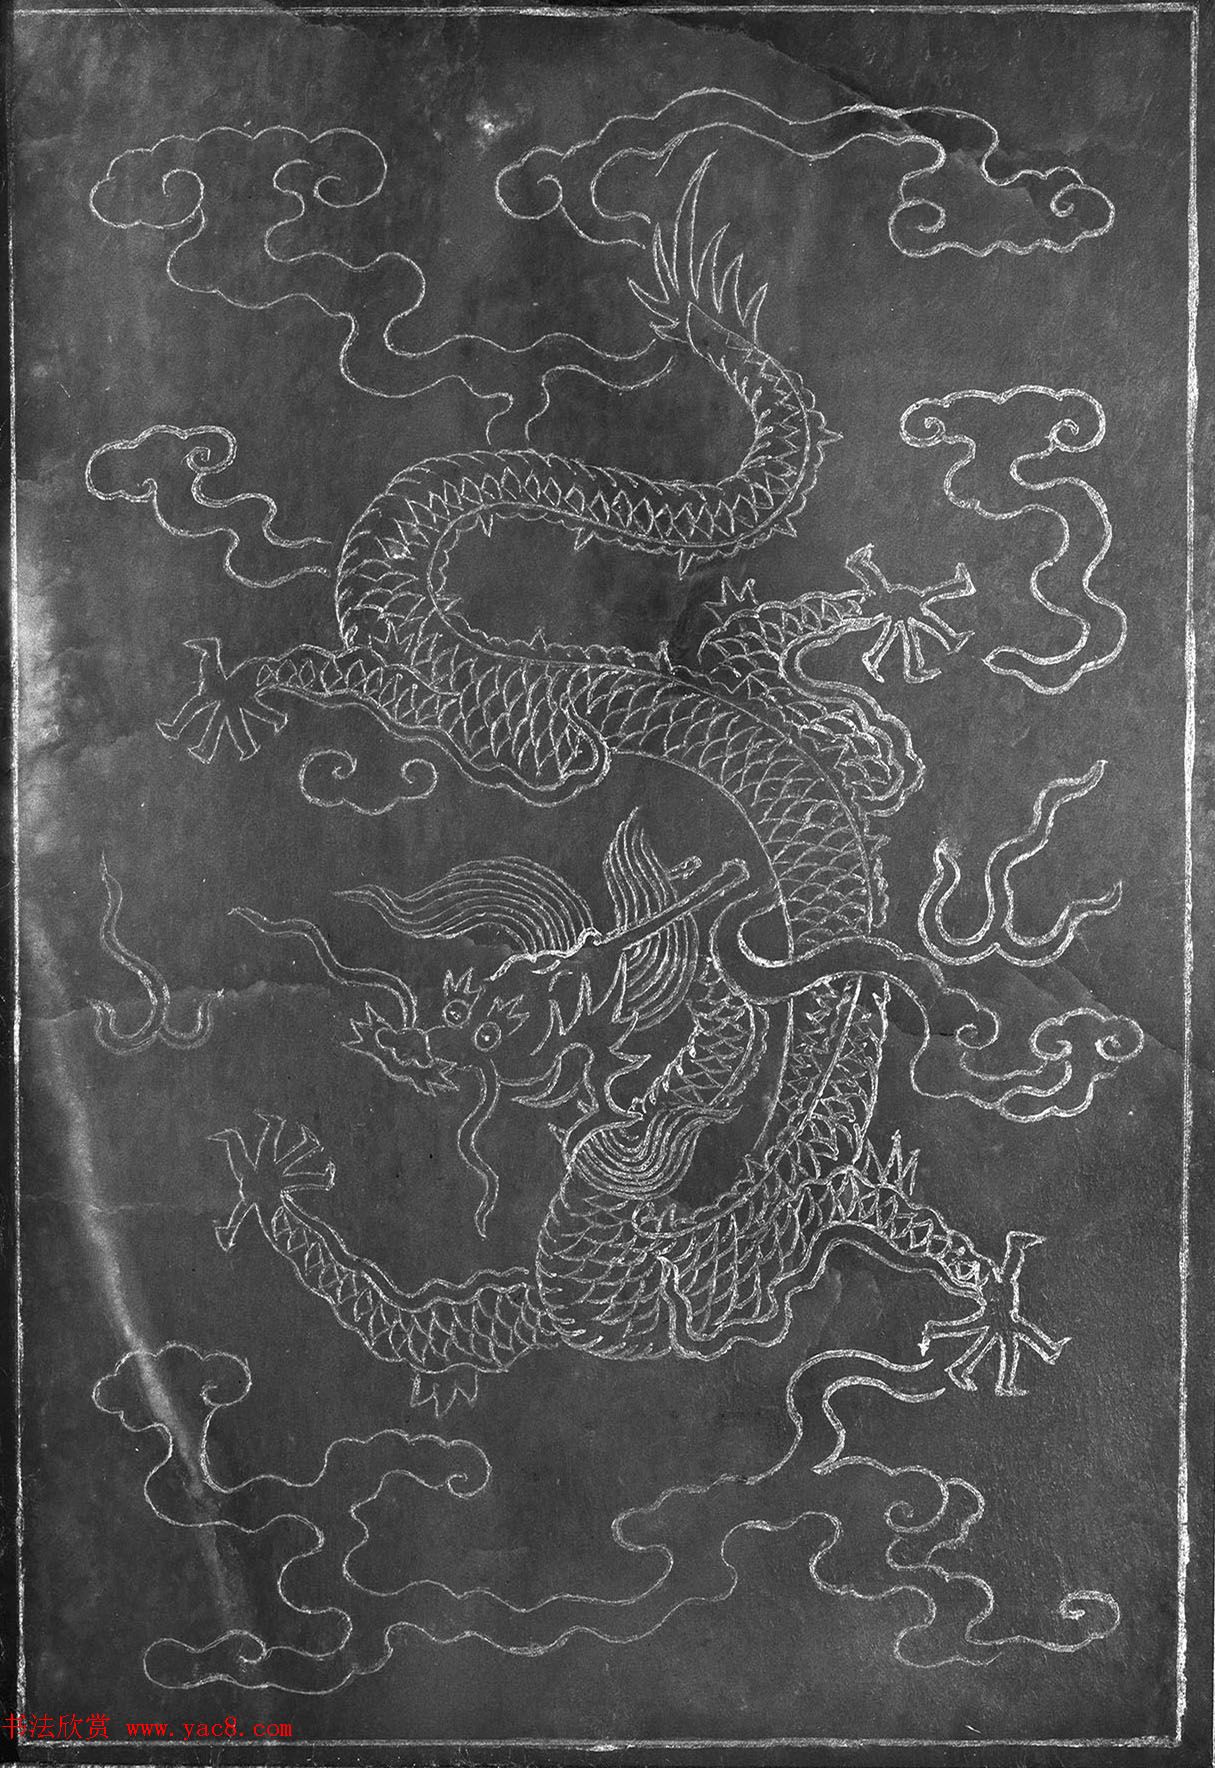 书法欣赏 www.yac8.com